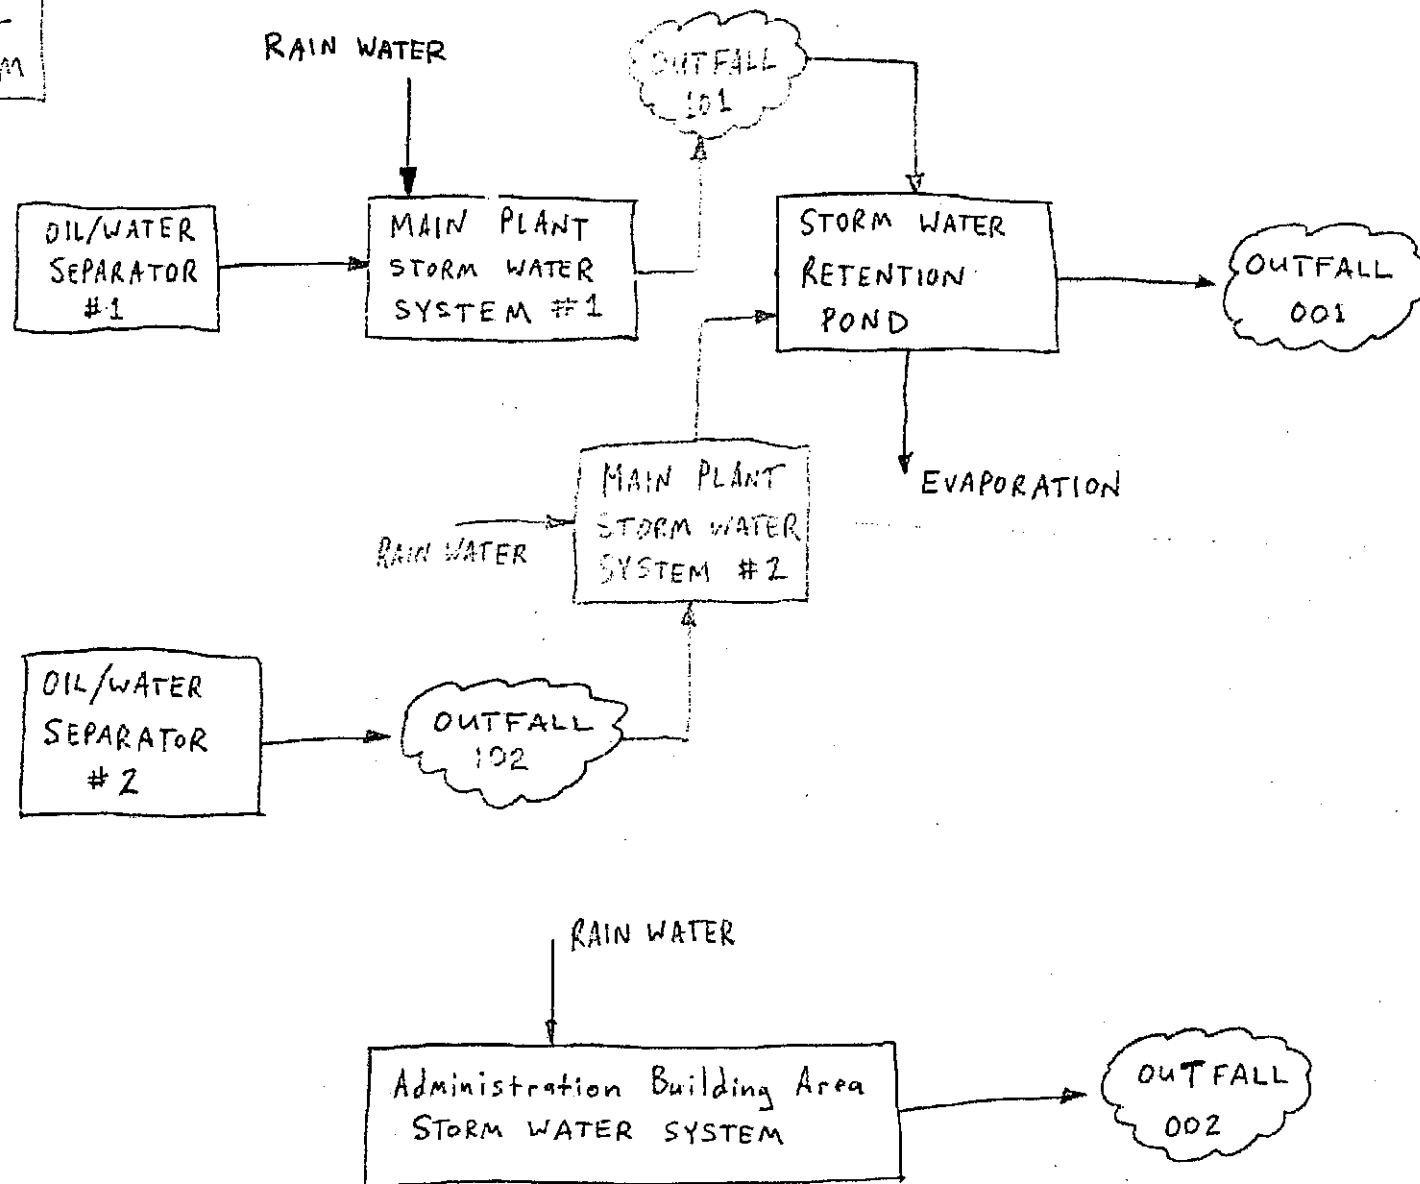 RAIN WATER
OUTFALL
101
OIL/WATER
SEPARATOR
#1
MAIN PLANT
STORM WATER
SYSTEM #1
STORM WATER
RETENTION
POND
OUTFALL
001
EVAPORATION
MAIN PLANT
STORM WATER
SYSTEM #2
RAIN WATER
OIL/WATER
SEPARATOR
#2
OUTFALL
102
RAIN WATER
Administration Building Area
STORM WATER SYSTEM
OUTFALL
002